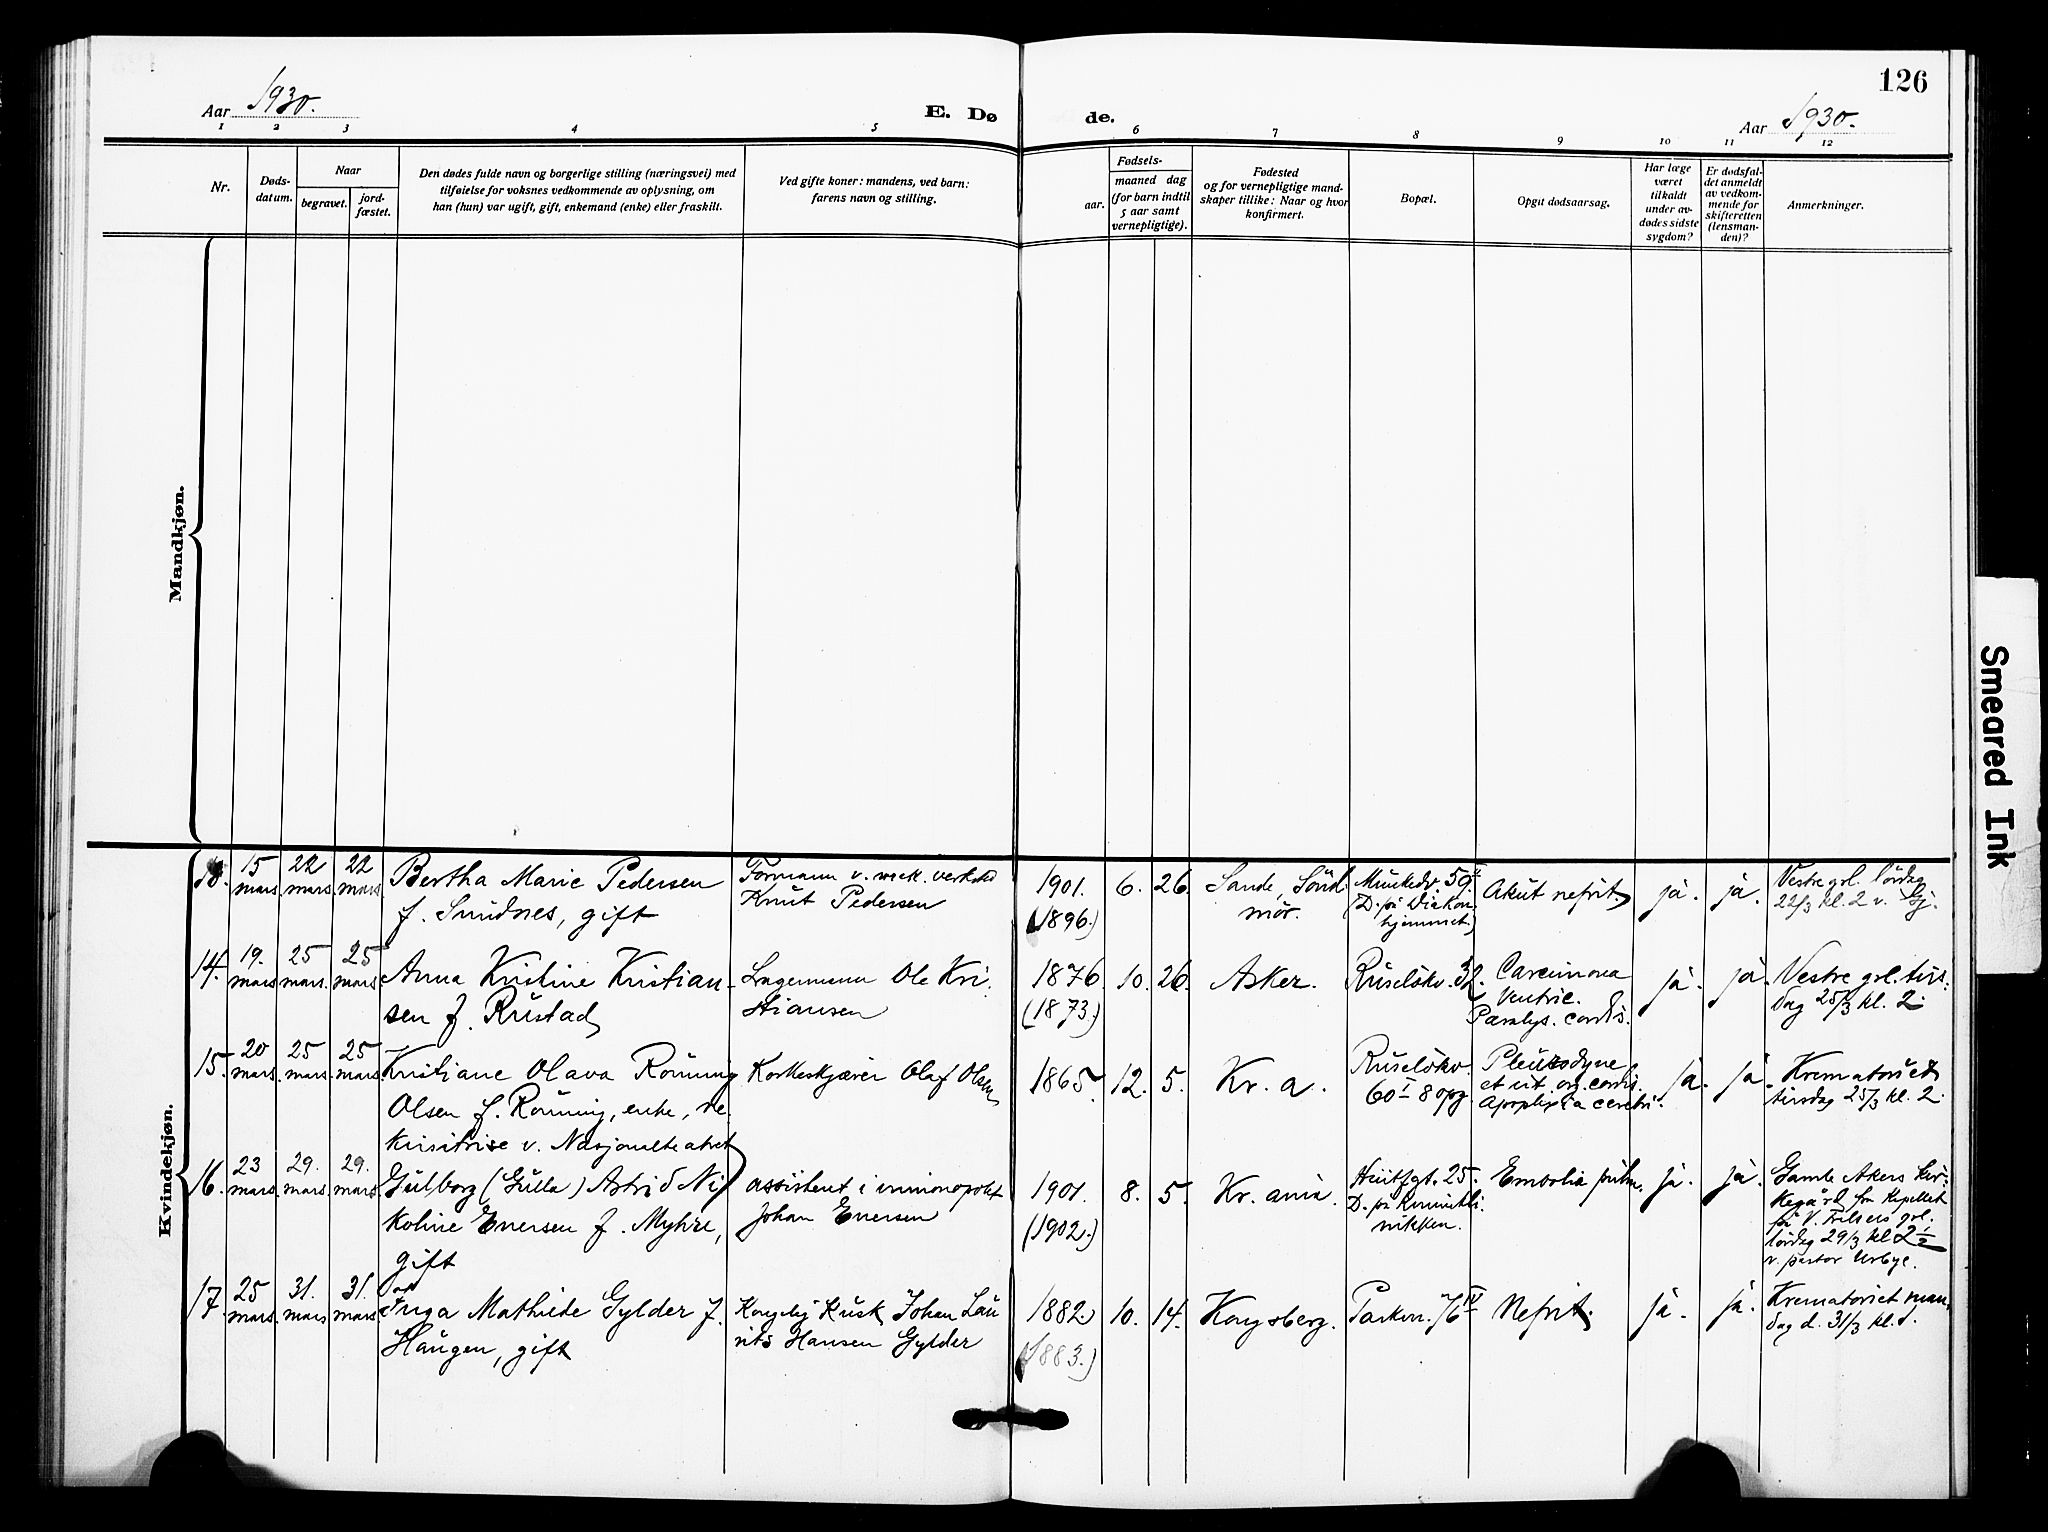 126
Aar 1930.
E. Dø de.
Aar 1930.
1 2 3 4 5 6 7 8 9 10 11 12
Nr.
Døds-
datum.
Naar
begravet.
jord-
fæstet.
Den dødes fulde navn og borgerlige stilling (næringsvei) med
tilføielse for voksnes vedkommende av oplysning, om
han (hun) var ugift, gift, enkemand (enke) eller fraskilt.
Ved gifte koner: mandens, ved barn:
farens navn og stilling.
Fødsels-
aar.
maaned dag
(for barn indtil
5 aar samt
vernepligtige).
Fødested
og for vernepligtige mand-
skaper tillike: Naar og hvor
konfirmert.
Bopæl.
Opgit dødsaarsag.
Har læge
været
tilkaldt
under av-
dødes sidste
sygdom?
Er dødsfal-
det anmeldt
av vedkom-
mende for
skifteretten
(lensman-
den)?
Anmerkninger.
Mandkjøn.
Kvindekjøn.
15 mars
22 mars
22 mars
Bertha Marie Pedersen
f. Smidnes, gift
Formann v. mek. verksted
Knut Pedersen
1901.
(1896.)
6. 26.
Sande, Sönd
mör.
Munkedv. 59
(D. på Diakon
hjemmet.)
Akut nefrit.
ja. ja.
Vestre grl. lördag
22/3 kl. 2 v.
14.
19. mars
25 mars.
25 mars.
Anna Kristine Kristian-
sen f. Rustad
Lagermann Ole Kri
stiansen
1876
(1873.)
10. 26.
Asker.
Ruselökv. 32.
Carcinoma
Ventric.
Paralys. cordis.
ja. ja.
Vestre grl. tirs-
dag 25/3 kl. 2.
15.
20 mars.
25 mars.
25 mars.
Kristiane Olava Rönning
Olsen f. Rönning, enke, re-
kvisitrise v. Nasjonalteatret
Korkeskjærer Olaf Olsen
1865.
12. 5.
Kr. a.
Ruselökv.
60 I 8 opg.
Pleurodyne
et vit. org. cordis.
Apoplexia cerebri.
ja. ja.
Krematoriet
tirsdag 25/3 kl. 2.
16.
23 mars.
29. mars.
29. mars.
Gulborg (Gulla) Astrid Ni
koline Enersen f. Myhre,
gift
assistent i vinmonopolet
Johan Enersen
1901.
(1902.)
8. 5.
Kr. ania.
Huitfgt. 25.
D. på Kvinnekli
nikken.
Embolia pulm.
ja. ja.
Gamle Akers kir-
kegård, fra kapellet
på V. Frelsers grl.
lördag 29/3 kl. 2 1/2
v. pastor Urbye.
17.
25 mars.
31. mars
31. mars
Inga Mathilde Gylder f.
Haugen, gift
Kongelig Kusk Johan Lau
rits Hansen Gylder
1882
(1883.)
10. 14.
Kongsberg.
Parkv. 76 IV
Nefrit.
ja. ja.
Krematoriet man-
dag d. 31/3 kl. 1.
Smeared Ink